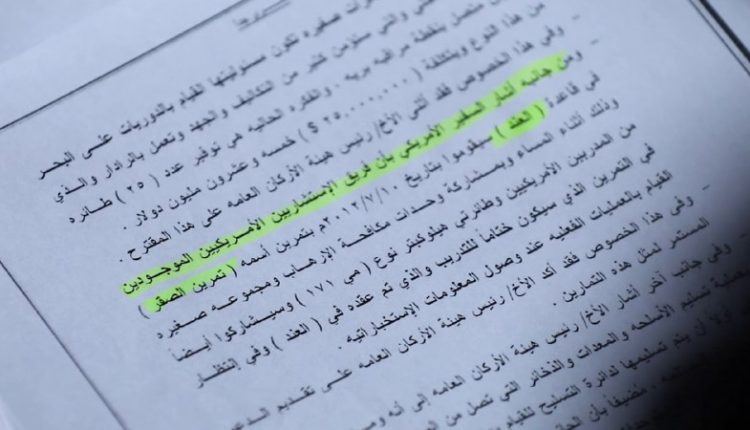 صغيره تكون مسئوليتها القيام بالدوريات على البحر
والتي ستؤمن كثير من التكاليف والجهد وتعمل بالرادار والذي
متصل بنقطة مراقبه بريه . والفكره الحاليه هي توفير عدد ( ٢٥ ) طائره
من هذا النوع وبتكلفة ( ٢٥,٠٠٠,٠٠٠ $ ) خمسه وعشرون مليون دولار .
- وفي هذا الخصوص فقد أثنى الأخ/ رئيس هيئة الأركان العامه على هذا المقترح .
- ومن جانبه أشار السفير الأمريكي بأن فريق الإستشاريين الأمريكيين الموجودين
في قاعدة ( العند ) سيقوموا بتاريخ ٢٠١٢/٧/١٠م بتمرين أسمه ( تمرين الصقر )
وذلك أثناء المساء وبمشاركة وحدات مكافحة الإرهاب ومجموعه صغيره
من المدربين الأمريكيين وطائرتي هيلوكبتر نوع ( مي ١٧١ ) وسيشاركوا أيضاً
في التمرين الذي سيكون ختاماً للتدريب والذي تم عقده في ( العند ) وفي إنتظار
القيام بالعمليات الفعليه عند وصول المعلومات الإستخباراتيه .
- وفي هذا الخصوص فقد أكد الأخ/ رئيس هيئة الأركان العامه على تقديم
المستمر لمثل هذه التمارين .
- وفي جانب آخر أشار الأخ/ رئيس هيئة الأركان العامه إلى أنه
تسليم الأسلحه والمعدات والذخائر التي تصل من
أولاً بأن يتم تسليمها لدائرة التسليح للقيام
مضيفاً بأن